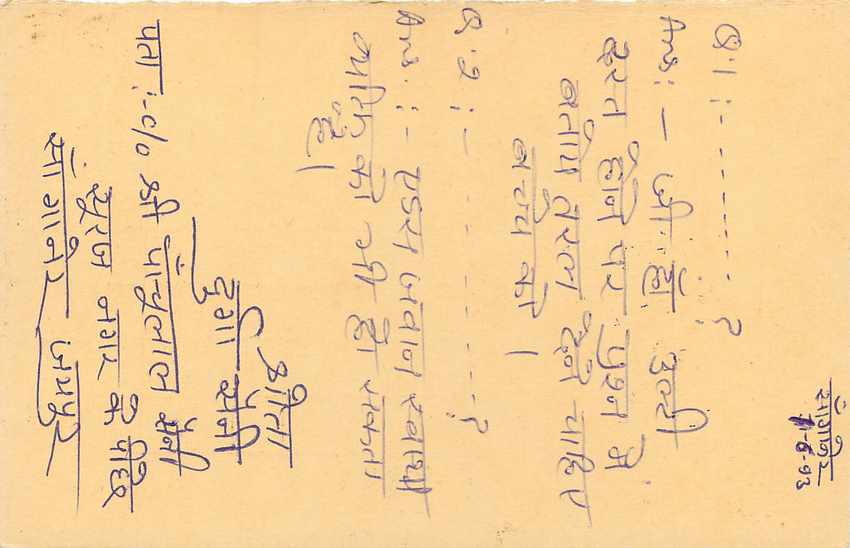 सांगानेर
11-6-93
Q.1 :- - - - - - - - ?
Ans: — जी हाँ उल्टी
दस्त होने पर प्रश्न मे
बतायें तरल देने चाहिए
बच्चे को।
Q.2 :- - - - - - - - ?
Ans. :- एड्स जवान स्वस्थ
व्यक्ति को भी हो सकता
है।
श्रोता
दुर्गा सैनी
पता :- c/o श्री पांचुलाल सैनी
सूरज नगर के पीछे
सांगानेर जयपुर